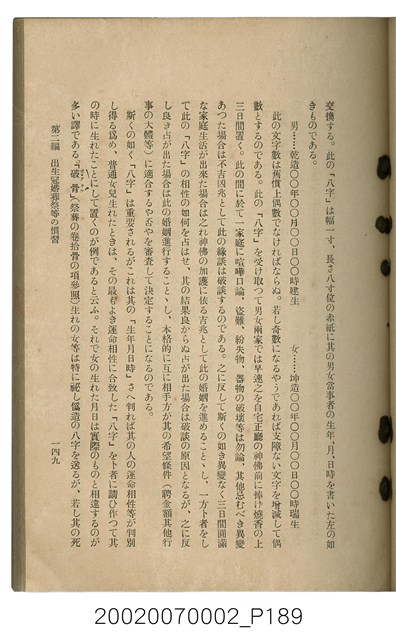 交換する。此の「八字」は幅一寸、長さ八寸位の赤紙に其の男女當事者の生年、月、日時を書いた左の如
きものである。
男…乾造〇〇年〇〇月〇〇日〇〇時建生　女…坤造〇〇年〇〇月〇〇日〇〇時瑞生
此の文字數は舊慣上偶數でなければならぬ。若し奇數になるやうであれば支障ない文字を增減して偶
數とするのである。此の「八字」を受け取つて男女兩家では早速之を自宅正廳の神佛前に捧げ燒香の上
三日間置く。此の間に於て一家庭に喧嘩口論、盜難、紛失物、器物の破壞等は勿論、其他忌むべき異變
あつた場合は不吉凶兆として此の緣談は破談するのである。之に反して斯くの如き異變なく三日間圓滿
な家庭生活が出來た場合は之れ神佛の加護に依る吉兆として此の婚姻を進めることゝし、一方卜者をし
て此の「八字」の相性の如何を占はせ、其の結果良からぬ占が出た場合は破談の原因となるが、之に反
し良き占が出た場合は此の婚姻進行することゝし、本格的に互に相手方が其の希望條件（聘金額其他行
事の大體等）に適合するや否やを審査して決定することになるのである。
斯くの如く「八字」は重要されるがこれは其の「生年月日時」さへ判れば其の人の運命相性等が判別
し得る爲め、普通女兒生れたときは、その最もよき運命相性に合致した「八字」を卜者に請ひ作つて其
の時に生れたことにして置くのが例であると云ふ。それで女の生れた月日は實際のものと相違するのが
多い譯である「破骨」（祭葬の卷拾骨の項參照）生れの女等は特に祕し僞造の八字を送るが、若し其の死
第二編　出生冠婚葬祭等の慣習
一四九
20020070002_P189